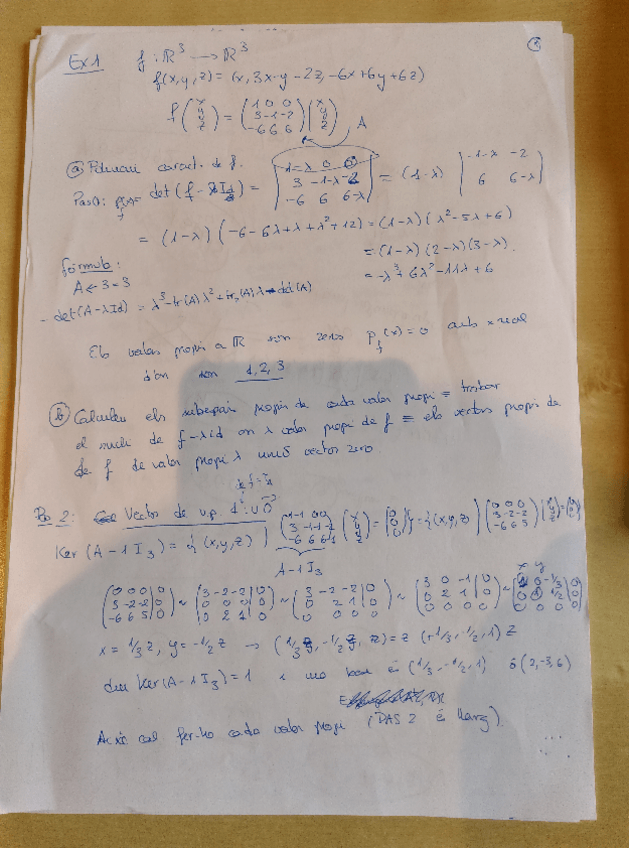 ①
Ex 1 f : ℝ³ → ℝ³
f(x,y,z) = (x, 3x-y-2z, -6x+6y+6z)
f (x y z) = (1 0 0 / 3 -1 -2 / -6 6 6) (x y z)
A
ⓐ Polinomi caract. de f.
Pas 1: det(f - λId) = |1-λ 0 0 / 3 -1-λ -2 / -6 6 6-λ| = (1-λ) |-1-λ -2 / 6 6-λ|
= (1-λ) (-6-6λ+λ+λ²+12) = (1-λ) (λ²-5λ+6)
= (1-λ) (2-λ) (3-λ).
= -λ³+6λ²-11λ+6
fórmula:
A ← 3×3
- det(A-λId) = λ³ - tr(A) λ² + tr₂(A) λ - det(A)
Els valors propis a ℝ son zeros P_f(x)=0 amb x real
d'on son 1, 2, 3
ⓑ Calculeu els subespais propis de cada valor propi = trobar
el nucli de f-λid on λ valor propi de f = els vectors propis de
de f de valor propi λ unió vector zero.
Pas 2: Vectors de v.p. 1 ∪ 0
Ker (A - 1 I₃) = { (x,y,z) | (1-1 0 0 / 3 -1-1 -2 / -6 6 6-1) (x y z) = (0 0 0) } = { (x,y,z) | (0 0 0 / 3 -2 -2 / -6 6 5) (x y z) = (0 0 0)
A - 1 I₃
(0 0 0 | 0 / 3 -2 -2 | 0 / -6 6 5 | 0) ~ (3 -2 -2 | 0 / 0 0 0 | 0 / 0 2 1 | 0) ~ (3 -2 -2 | 0 / 0 2 1 | 0 / 0 0 0 | 0) ~ (3 0 -1 | 0 / 0 2 1 | 0 / 0 0 0 | 0) ~ (x y / 1 0 -1/3 | 0 / 0 1 1/2 | 0 / 0 0 0 | 0)
x = 1/3 z, y = -1/2 z → (1/3 z, -1/2 z, z) = z (+1/3, -1/2, 1) z
dim Ker(A - 1 I₃) = 1 i una base és (1/3, -1/2, 1) ó (2, -3, 6)
Així cal fer-ho cada valor propi (PAS 2 és llarg).